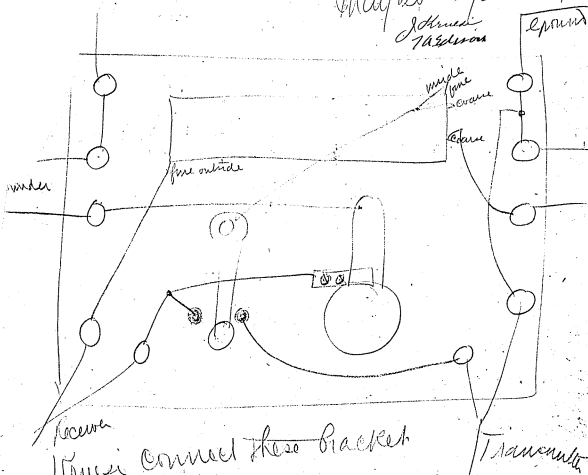 J Kruesi
TAEdison
ground
inside
fine
coarse
coarse
fine outside
Receiver
Kruesi Connect these bracket